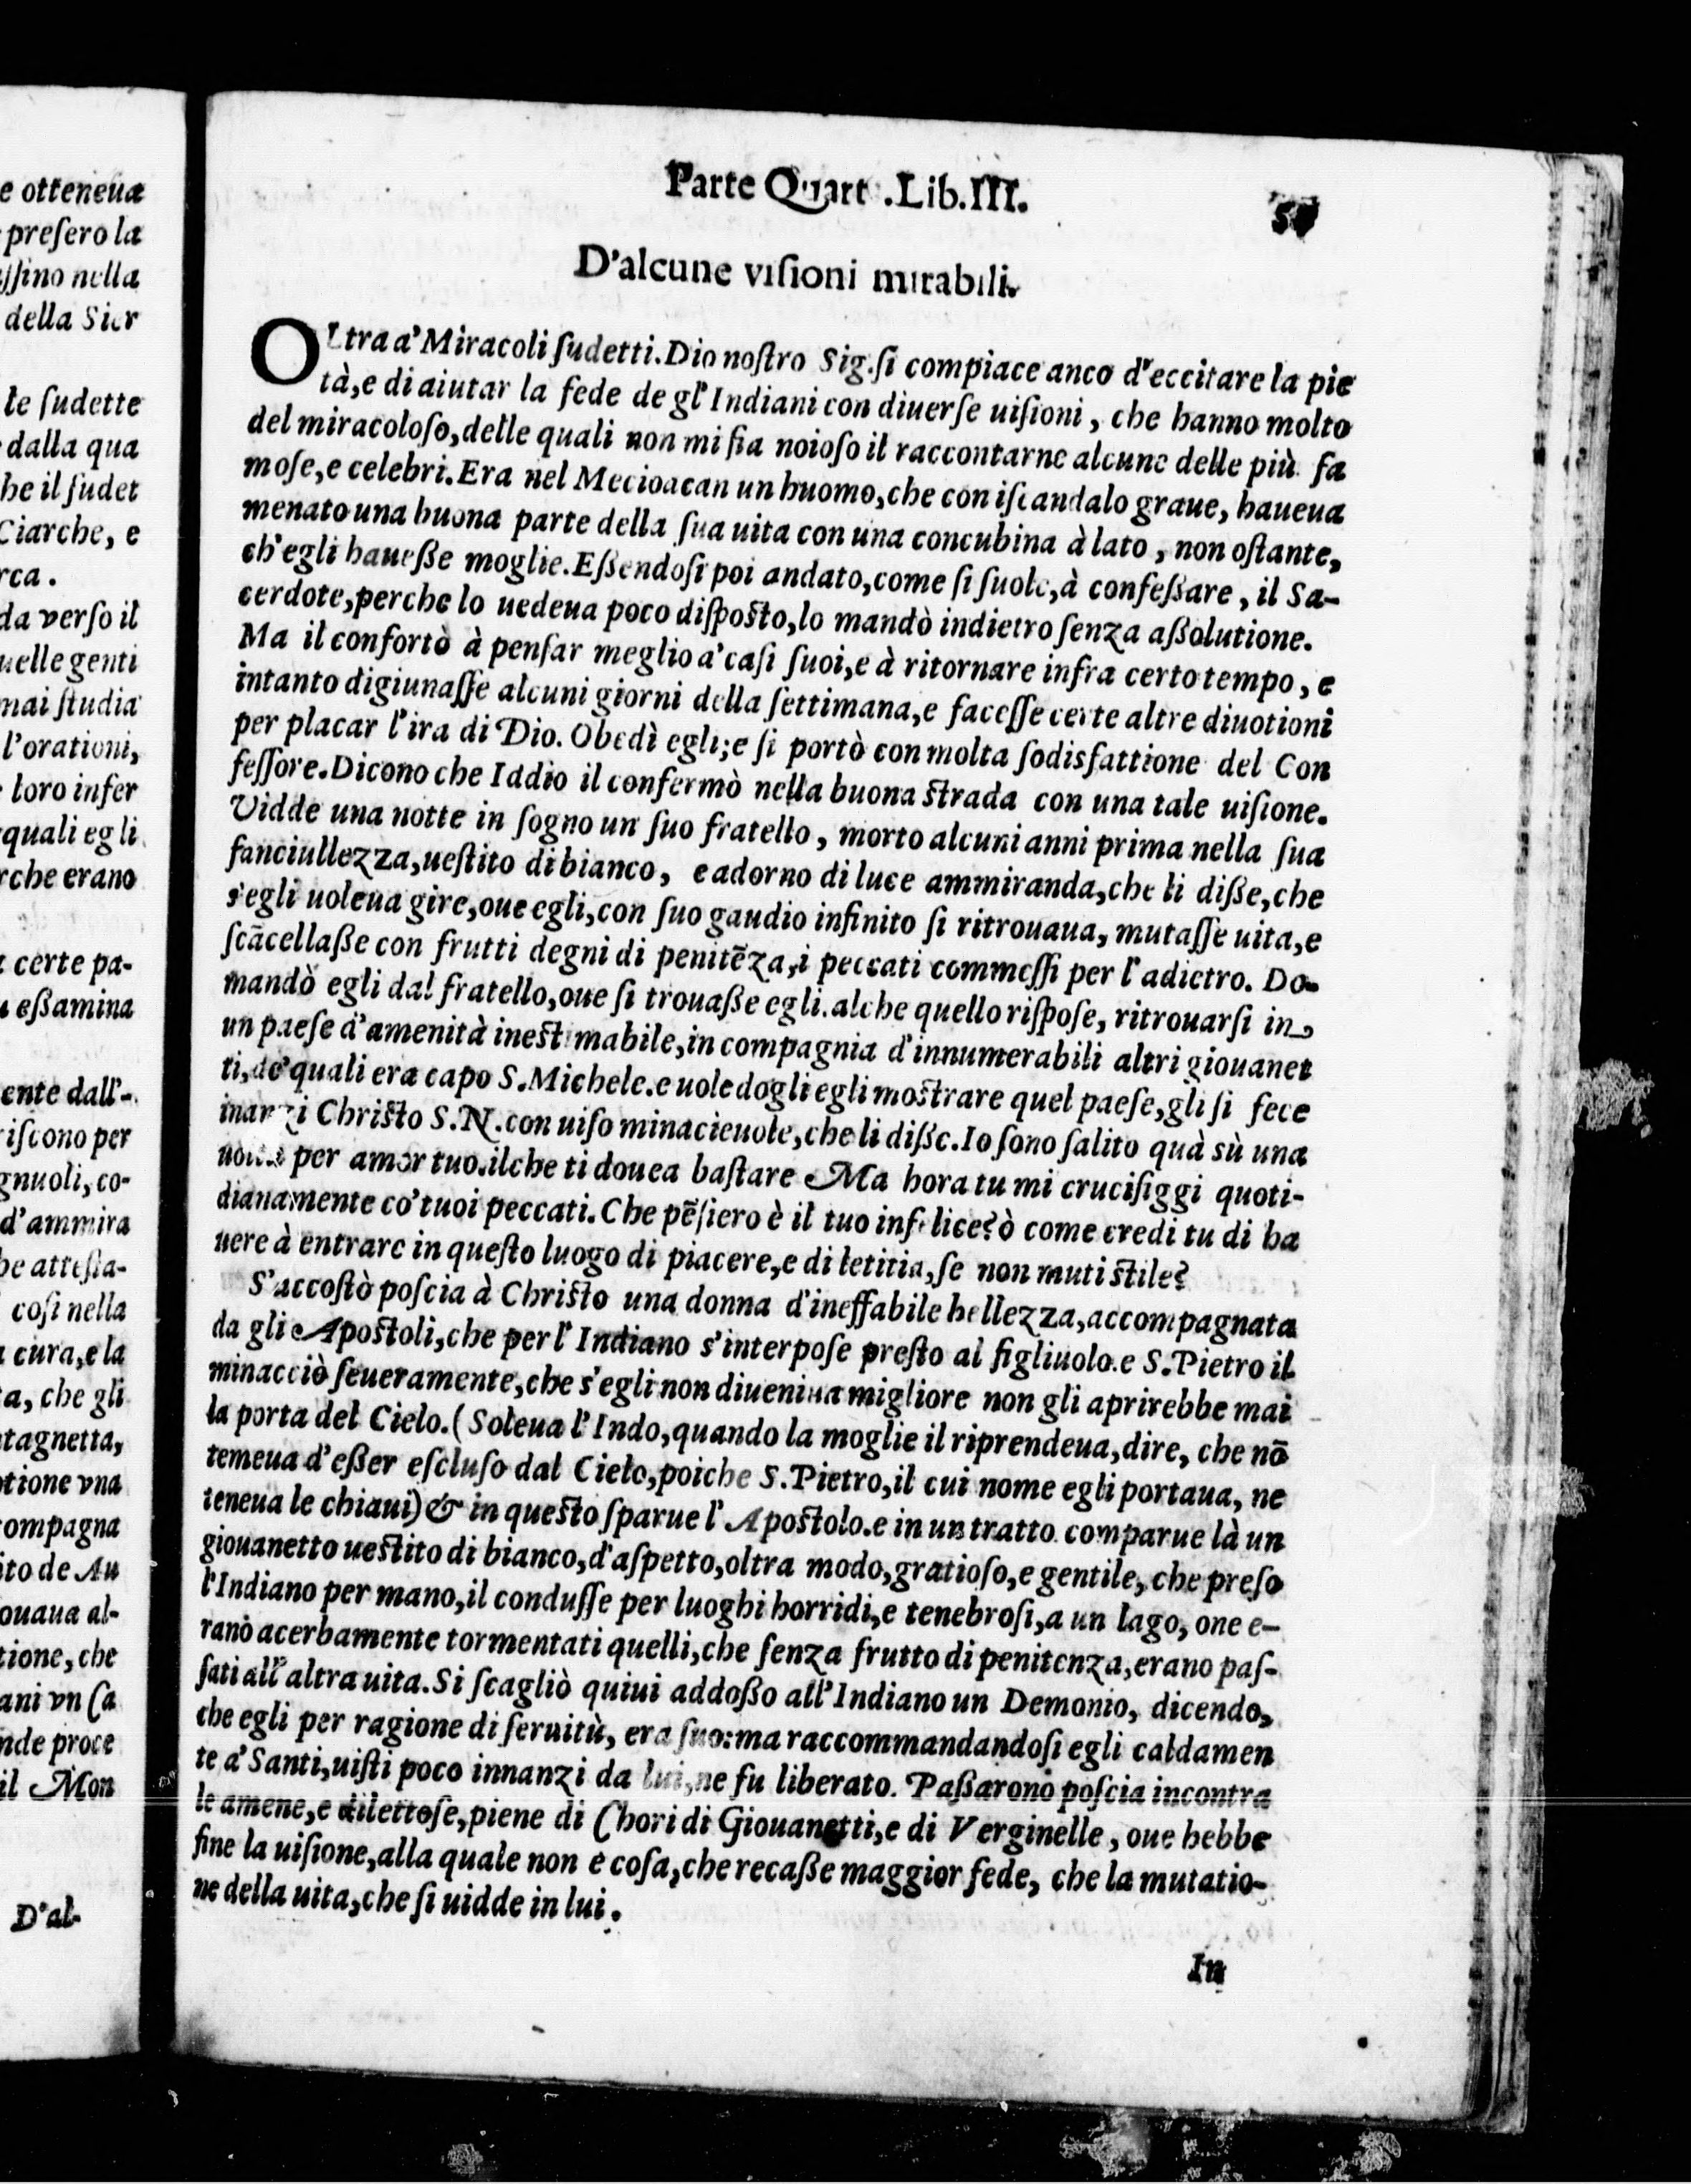 e otteneua
preſero la
ſſino nella
della Sier
le ſudette
dalla qua
he il ſudet
Ciarche, e
rca.
da verſo il
uelle genti
mai ſtudia
l'orationi,
loro infer
quali egli
rche erano
certe pa-
eßamina
ente dall'-
riſcono per
gnuoli, co-
d'ammira
he atteſta-
coſi nella
cura, e la
ta, che gli
tagnetta,
otione vna
compagna
ito de Au
ouaua al-
tione, che
ani vn ſa
nde proce
il Mon
D'al-
Parte Quart .Lib.III.
D'alcune viſioni mirabili.
OLtra a' Miracoli ſudetti. Dio noſtro Sig. ſi compiace anco d'eccitare la pie
tà, e di aiutar la fede de gl'Indiani con diuerſe uiſioni, che hanno molto
del miracoloſo, delle quali non mi ſia noioſo il raccontarne alcune delle più fa
moſe, e celebri. Era nel Mecioacan un huomo, che con iſcandalo graue, haueua
menato una buona parte della ſua uita con una concubina à lato, non oſtante,
ch'egli haueße moglie. Eßendoſi poi andato, come ſi ſuole, à confeßare, il Sa-
cerdote, perche lo uedeua poco diſpoſto, lo mandò indietro ſenza aßolutione.
Ma il confortò à penſar meglio a' caſi ſuoi, e à ritornare infra certo tempo, e
intanto digiunaſſe alcuni giorni della ſettimana, e faceſſe certe altre diuotioni
per placar l'ira di Dio. Obedì egli; e ſi portò con molta ſodisfattione del Con
feſſore. Dicono che Iddio il confermò nella buona ſtrada con una tale uiſione.
Vidde una notte in ſogno un ſuo fratello, morto alcuni anni prima nella ſua
fanciullezza, ueſtito di bianco, e adorno di luce ammiranda, che li diße, che
s'egli uoleua gire, oue egli, con ſuo gaudio infinito ſi ritrouaua, mutaſſe uita, e
ſcãcellaße con frutti degni di penitẽza, i peccati commeſſi per l'adietro. Do-
mandò egli dal fratello, oue ſi trouaße egli. alche quello riſpoſe, ritrouarſi in
un paeſe d'amenità ineſtimabile, in compagnia d'innumerabili altri giouanet
ti, de' quali era capo S. Michele. e uoledogli egli moſtrare quel paeſe, gli ſi fece
inanzi Chriſto S.N. con uiſo minacieuole, che li diße. Io ſono ſalito quà sù una
uolta per amor tuo. ilche ti douea baſtare Ma hora tu mi crucifiggi quoti-
dianamente co' tuoi peccati. Che pẽſiero è il tuo infelice? ò come credi tu di ha
uere à entrare in queſto luogo di piacere, e di letitia, ſe non muti ſtile?
S'accoſtò poſcia à Chriſto una donna d'ineffabile bellezza, accompagnata
da gli Apoſtoli, che per l'Indiano s'interpoſe preſto al figliuolo. e S. Pietro il
minacciò ſeueramente, che s'egli non diueniua migliore non gli aprirebbe mai
la porta del Cielo. (Soleua l'Indo, quando la moglie il riprendeua, dire, che nõ
temeua d'eßer eſcluſo dal Cielo, poiche S. Pietro, il cui nome egli portaua, ne
teneua le chiaui) & in queſto ſparue l'Apoſtolo. e in un tratto comparue là un
giouanetto ueſtito di bianco, d'aſpetto, oltra modo, gratioſo, e gentile, che preſo
l'Indiano per mano, il conduſſe per luoghi horridi, e tenebroſi, a un lago, one e-
rano acerbamente tormentati quelli, che ſenza frutto di penitenza, erano paſ-
ſati all'altra uita. Si ſcagliò quiui addoßo all'Indiano un Demonio, dicendo,
che egli per ragione di ſeruitù, era ſuo: ma raccommandandoſi egli caldamen
te a' Santi, uiſti poco innanzi da lui, ne fu liberato. Paßarono poſcia incontra
le amene, e dilettoſe, piene di Chori di Giouanetti, e di Verginelle, oue hebbe
fine la uiſione, alla quale non è coſa, che recaße maggior fede, che la mutatio-
ne della uita, che ſi uidde in lui.
In